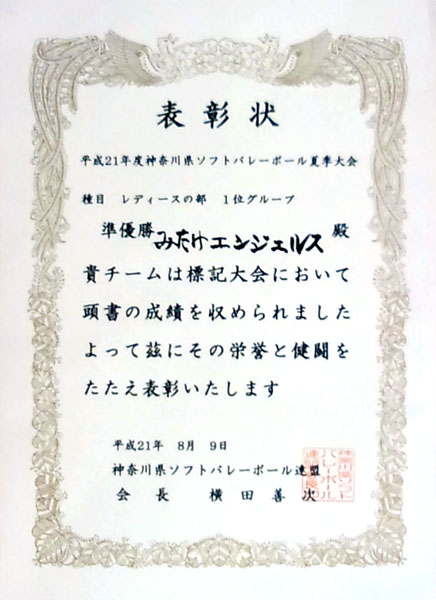 表彰状
平成21年度神奈川県ソフトバレーボール夏季大会
種目 レディースの部 1位グループ
準優勝 みたけエンジェルス 殿
貴チームは標記大会において
頭書の成績を収められました
よって茲にその栄誉と健闘を
たたえ表彰いたします
平成21年 8月 9日
神奈川県ソフトバレーボール連盟
会長 横田善次